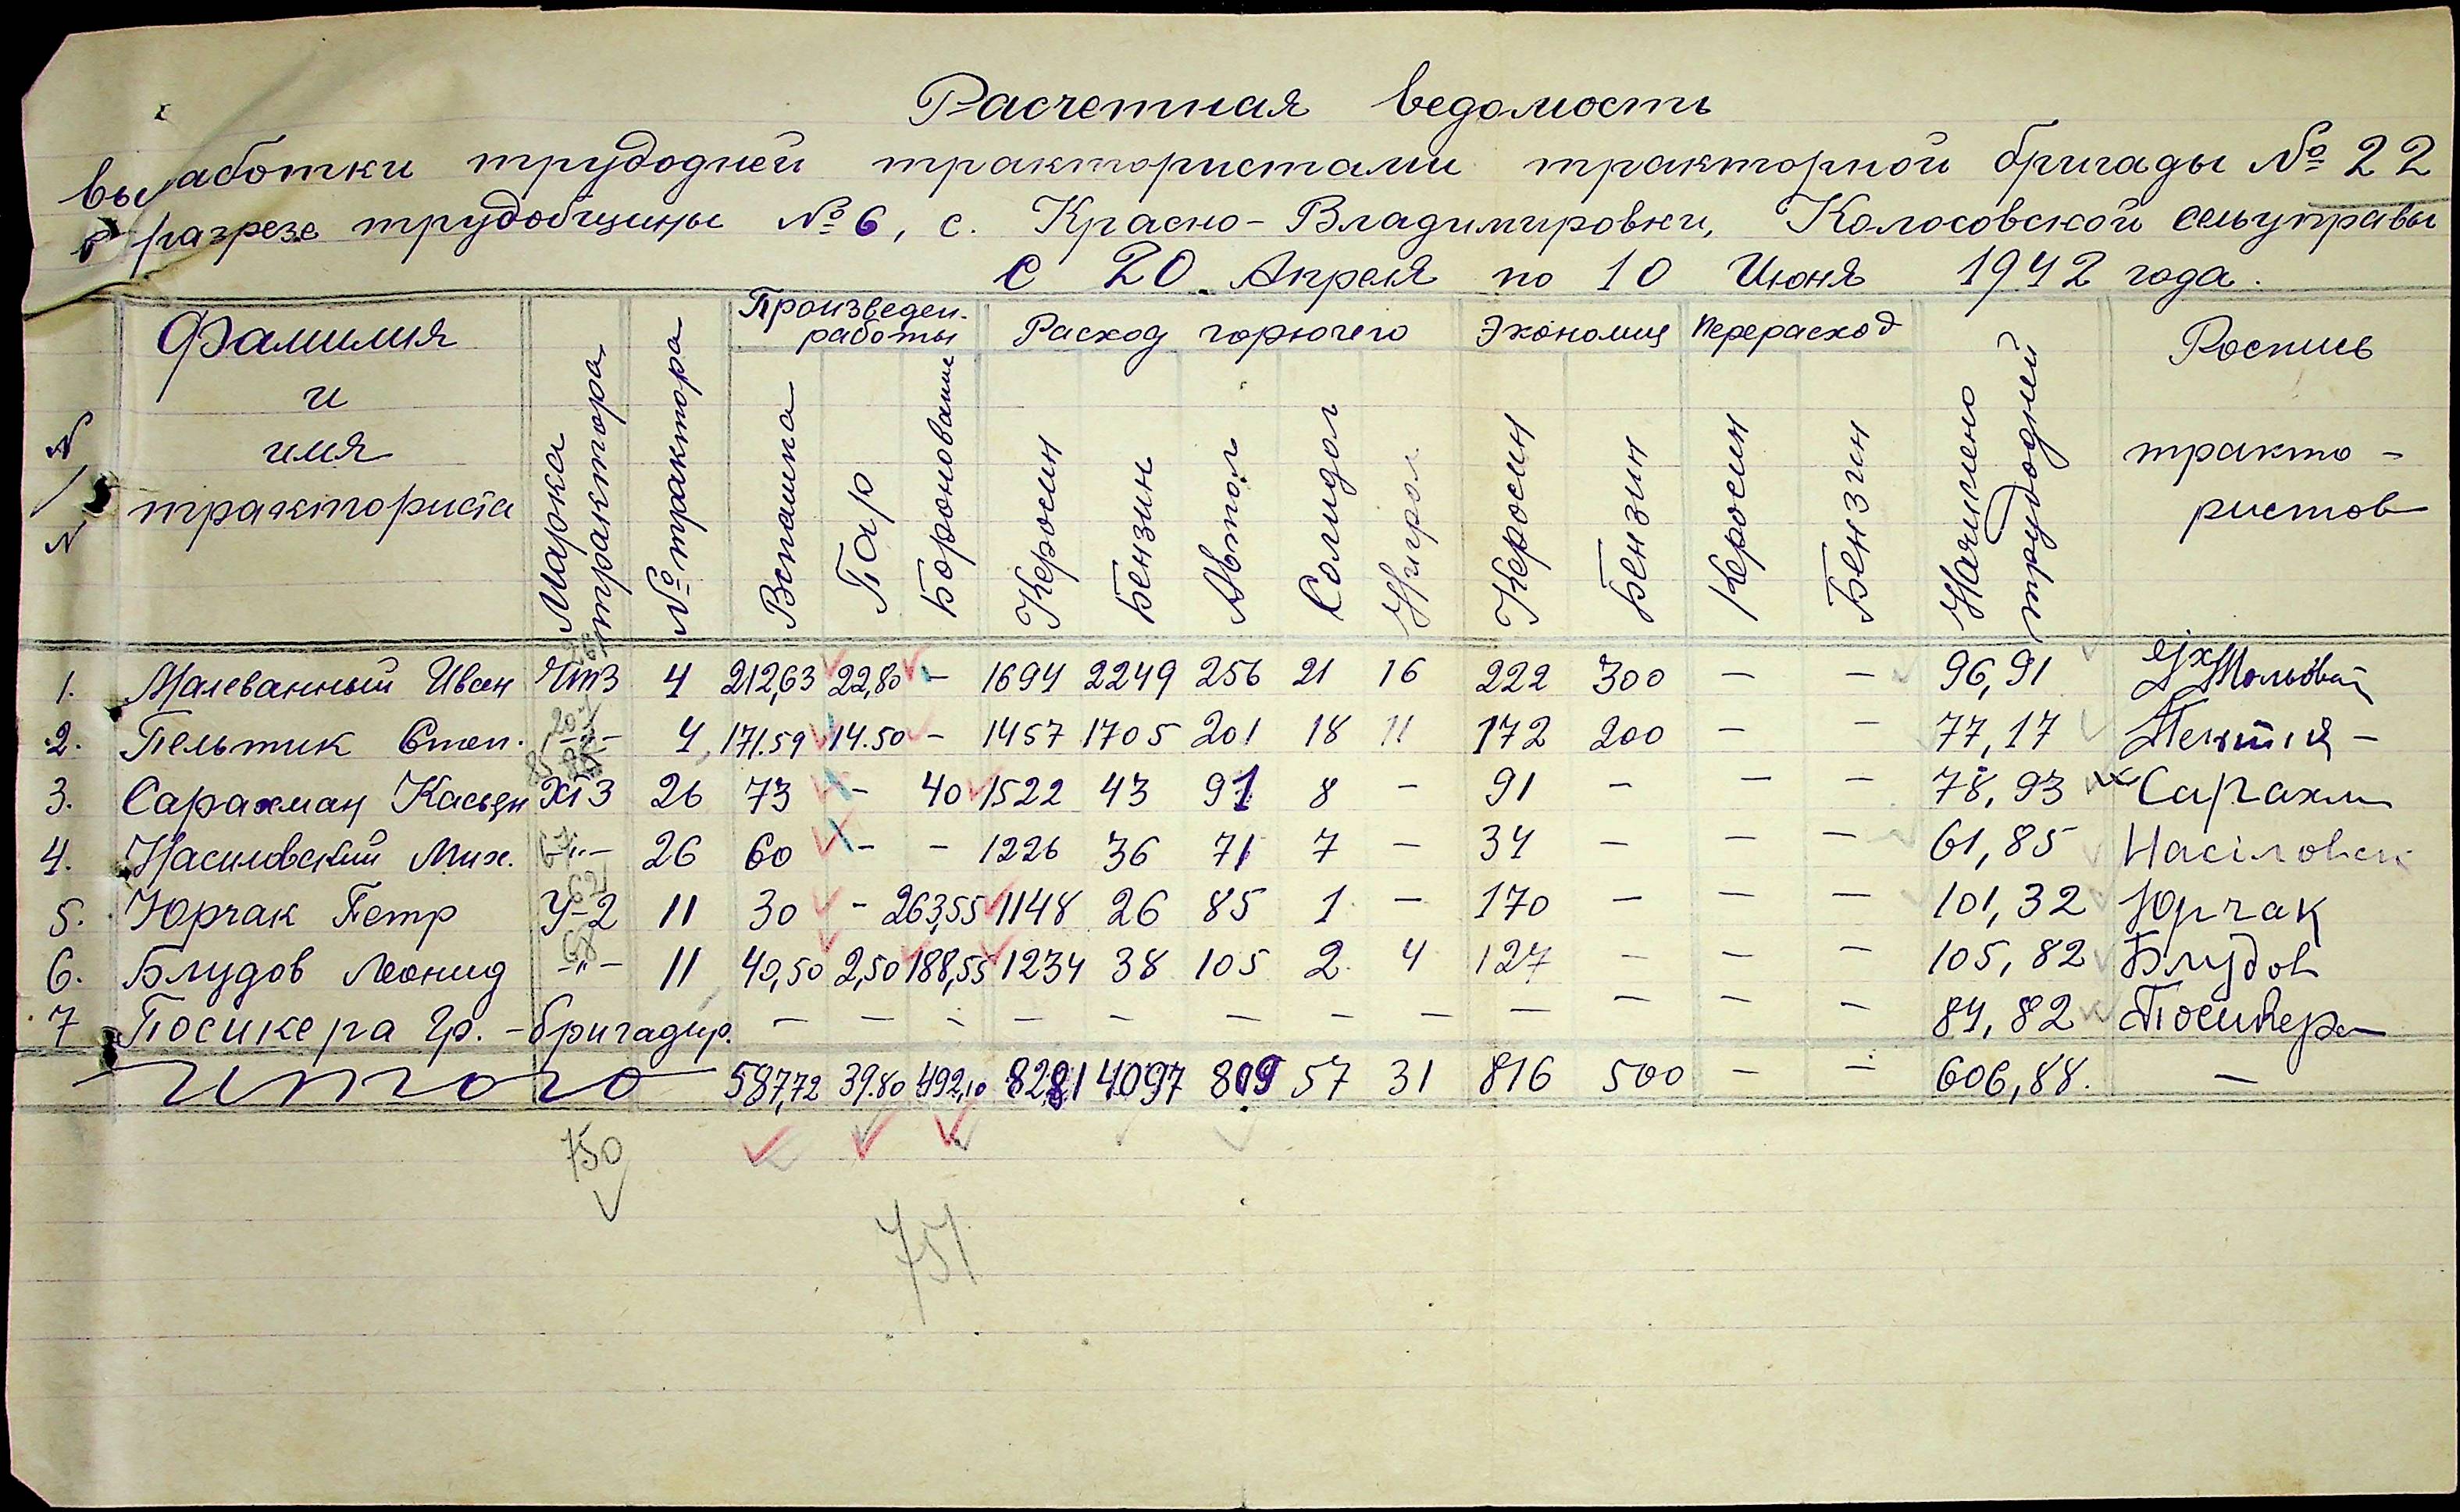 Расчетная ведомость
выработки трудодней трактористами тракторной бригады № 22
в разрезе трудобщины № 6, с. Красно-Владимировки, Колосовской сельуправы
с 20 Апреля по 10 Июня 1942 года.
N/N Фамилия и имя тракториста Марка трактора № трактора Произведен. работы Расход горючего Экономия Перерасход Начислено трудодней Роспись тракто-ристов
Вспашка Пар Боронование Керосин Бензин Автол Солидол Нигрол Керосин Бензин Керосин Бензин
1. Малеванный Иван ЧТЗ 4 212,63 22,80 - 1694 2249 256 21 16 222 300 - - 96,91
2. Пельтик Степ. -"- 4 171.59 14.50 - 1457 1705 201 18 11 172 200 - - 77,17
3. Сарахман Касьян ХТЗ 26 73 - 40 1522 43 91 8 - 91 - - - 78,93 Сарахм
4. Насиловский Мих. -"- 26 60 - - 1226 36 71 7 - 34 - - - 61,85 Насіловск
5. Юрчак Петр У-2 11 30 - 263,55 1148 26 85 1 - 170 - - - 101,32 Юрчак
6. Блудов Леонид -"- 11 40,50 2,50 188,55 1234 38 105 2 4 127 - - - 105,82 Блудов
7 Посикера Гр. - бригадир. - - - - - - - - - - - - 84,82 Посикера
Итого 587,72 39.80 492,10 8281 4097 809 57 31 816 500 - - 606,88. -
750
751